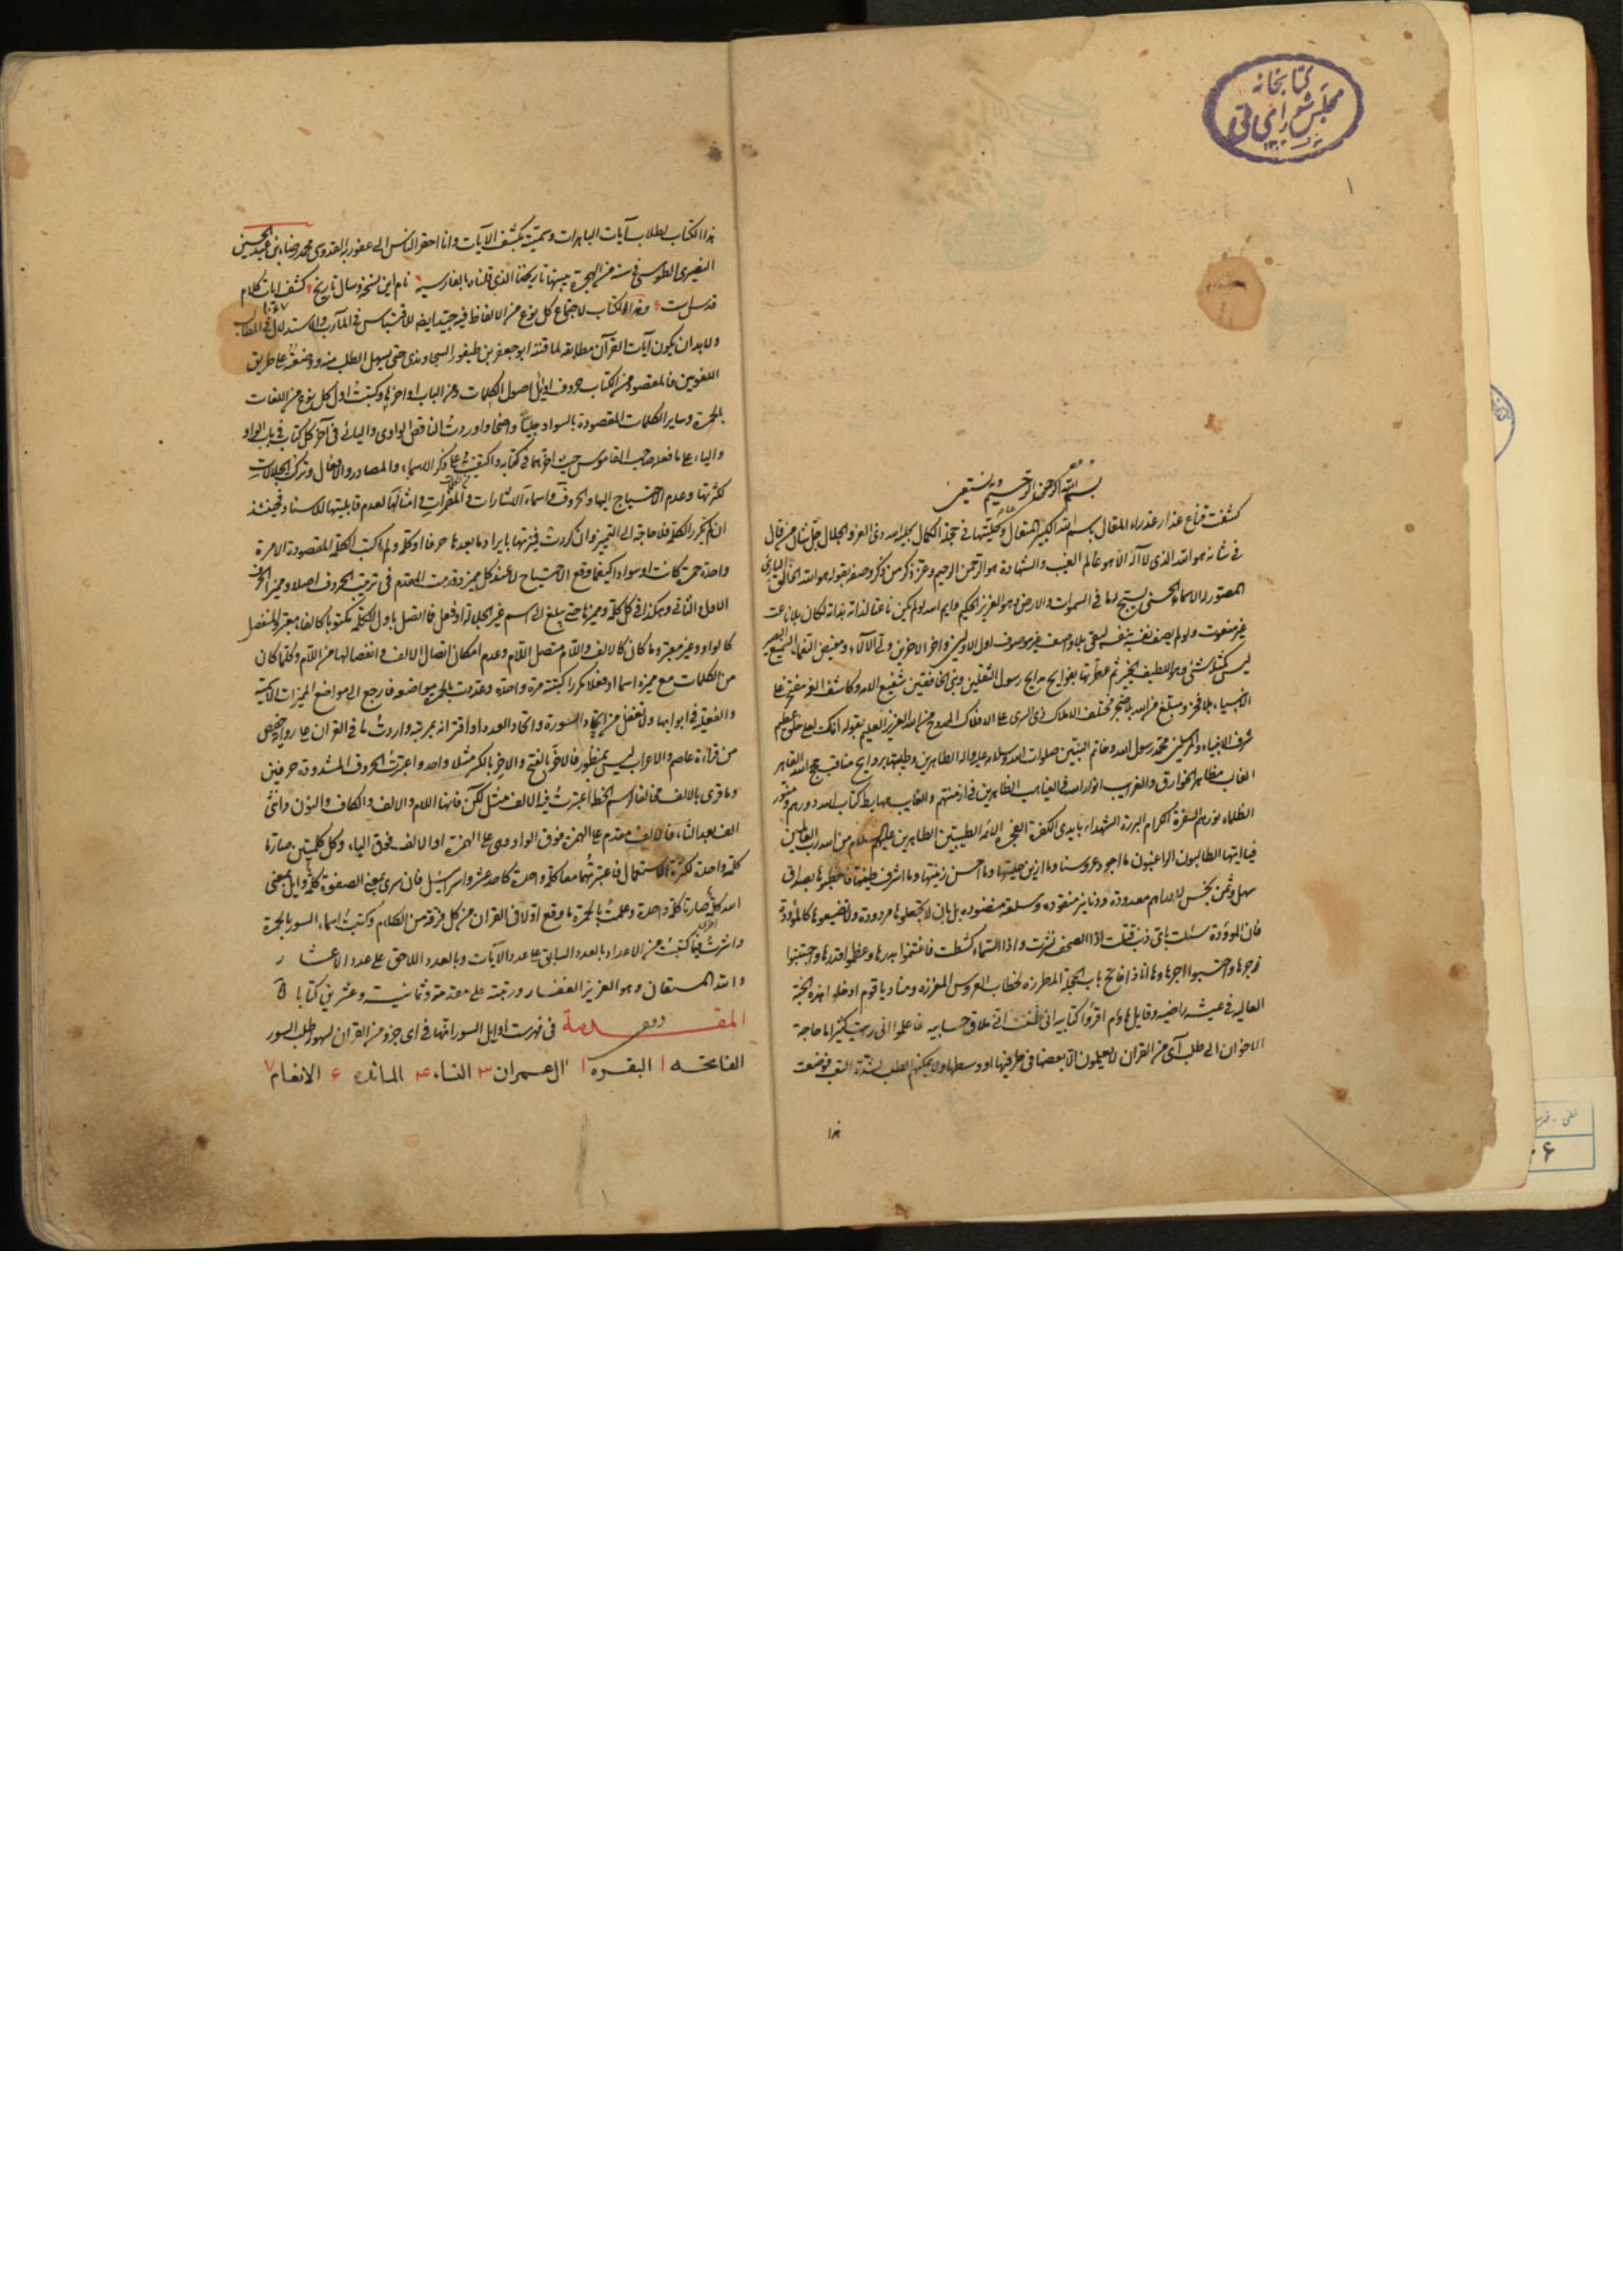 كتابخانه
مجلس شورای ملی
١
بسم الله الرحمن الرحيم وبه نستعين
كشفت قناع عذار عذراء المقال بسم الله الكبير المتعال وحليتها في حجلة الكمال بحلية حمد ذي العز والجلال جل شأنه من قال
في شأنه هو الله الذي لا اله الا هو عالم الغيب والشهادة هو الرحمن الرحيم وعز ذكره من ذكر وصفه بقوله هو الله الخالق البارئ
المصور له الاسماء الحسنى يسبح له ما في السموات والارض وهو العزيز الحكيم وايم الله لو لم يكن ناعتا لذاته بذاته لكان بلا ناعت
غير منعوت ولو لم يصف نفسه بنفسه لبقي بلا وصف غير موصوف اول الاولين واخر الاخرين ولي الالاء ومفيض النعماء السميع البصير
ليس كمثله شئ وهو اللطيف الخبير ثم عطرتها بفوايح مدايح رسول الثقلين ونبي الخافقين شفيع الامة وكاشف الغمة مفتخر
الانبياء بلا فخر ومبلغ من الله بلا ضجر مختلف الاملاك الممدوح من الله العزيز العليم بقوله انك لعلى خلق عظيم
شرف الانبياء والمرسلين محمد رسول الله وخاتم النبيين صلوات الله وسلامه عليه واله الطاهرين وطيبتها بروايح مناقب حجج الله القاهر
الغالب مظاهر الخوارق والغرايب انوار الله في الغياهب الظاهرين في ازمنتهم والغايب مهابط كتاب الله
الظلماء نورهم السفرة الكرام البررة الشهداء بايدي الكفرة الفجرة الائمة الطيبين الطاهرين عليهم سلام من الله رب العالمين
فيا ايتها الطالبون الراغبون ما اجود عروسنا وما ازين حليتها وما احسن زينتها وما اشرف طينتها فاخطبوها بصداق
سهل وثمن بخس لا دراهم معدودة ودنانير منقودة وسلعة منضودة بل بان لا تجعلوها مردودة ولا تضيعوها كالموؤدة
فان الموؤدة سئلت باي ذنب قتلت اذا الصحف نشرت واذا السماء كشطت فاغتنموا بدرها وعظموا قدرها واجتنبوا
زجرها واحتسبوا اجرها وها انا ذا فاتح باب الحجلة المطرزة لخطاب العروس المعززة ومناد يا قوم ادخلوا هذه الجنة
العالية في عيشة راضية وقايل هاؤم اقرؤا كتابيه اني ظننت اني ملاق حسابيه فاعلموا اني رايت كثيرا ما حاجة
الاخوان الى طلب آي من القران لا يعلمون الا بعضها في طرفيها او وسطها ولا يمكنهم الطلب لشدة التعب فوضعت
هذا
هذا الكتاب لطلاب آيات الباهرات وسميته بكشف الآيات وانا احقر الناس الى عفو ربه القدوي محمد رضا بن عبد الحسين
النصيري الطوسي في سنة من الهجرة بينها تاريخنا الذي قلناه بالفارسية نام اين نسخه وسال تاريخ كشف ايات كلام
قدس است ١٠٦٧ وهذا الكتاب لاجتماع كل نوع من الالفاظ فيه جيد ايضا للاقتباس في المآرب والاستدلال في المطالب
ولا بد ان يكون آيات القرآن مطابقة لما قننه ابو جعفر بن طيفور السجاوندي حتى يسهل الطلب منه ووضعته على طريق
اللغويين فالمقصود من الكتاب حروف اوايل اصول الكلمات ومن الباب اواخرها وكتبت اول كل نوع من اللغات
بالحمرة وساير الكلمات المقصودة بالسواد جليا واضحا واوردت الناقص الواوي واليائي في آخر كل كتاب في باب الواو
والياء على ما فعله صاحب القاموس حيث اخرهما في كتابه واكتفيت على ذكر الاسماء والمصادر والافعال وتركت الجلالات
لكثرتها وعدم الاحتياج اليها والحروف واسماء الاشارات والمضمرات وامثالها لعدم قابليتها للاسناد فحينئذ
ان لم يتكرر الكلمة فلا حاجة الى التمييز وان كررت ميزتها بايراد ما بعدها حرفا او كلمة ولم اكتب الكلمة المقصودة الا مرة
واحدة حمرة كانت او سوادا كيفما وقع الاحتياج لا عند كل مميز وقدمت المقدم في ترتيب الحروف اصلا ومميز الحرف
الاول الثاني وهكذا في كل كلمة ومميزها حتى يبلغ الى اسم غير الجلالة او فعل فما اتصل باول الكلمة مكتوبا كالفاء معتبر والمنفصل
كالواو وغير معتبر وما كان كالالف واللام متصل اللام وعدم امكان اتصال الالف وانفصالها من اللام وكلما كان
من الكلمات مع مميزه اسما او فعلا مكررا كتبته مرة واحدة وعددت بالحمرة مواضعه فارجع الى مواضع المميزات الاسمية
والفعلية في ابوابها ولا تغفل من اتحاد السورة واتحاد العدد او اقترانه بمرتبة واوردت ما في القران على رواية حفص
من قراءة عاصم والاعراب ليس بمنظور فالآخر بالفتح والآخر بالكسر مثلا واحد واعتبرت الحروف المشددة حرفين
وما قرئ بالالف مخالفا لرسم الخط اعتبرت فيه الالف مثل لكن فانها اللام والالف والكاف والنون وانثى
الف بعد الثاء فالالف مقدم على الهمزة فوق الواو وهي على الهمزة او الالف فوق الياء وكل كلمتين صارتا
كلمة واحدة لكثرة الاستعمال فاعتبرتهما معا كلمة واحدة كاحد عشر واسرائيل فان اسرى بمعنى الصفوة كلمة وايل بمعنى
الله كلمة اخرى صارتا كلمة واحدة وعلمت بالحمرة ما وقع اولا في القران من كل فرقة من الكلام وكتبت اسماء السور بالحمرة
واشرت فيما كتبت من الاعداد بالعدد السابق على عدد الآيات وبالعدد اللاحق على عدد الاعشار
والله المستعان وهو العزيز الغفار ورتبته على مقدمة وثمانية وعشرين كتابا
المقدمة في فهرست اوايل السور انها في اي جزو من القران لسهولة طلب السور
الفاتحه ١ البقره ١ ال عمران ٣ النساء ۴ المائده ۶ الانعام ٧